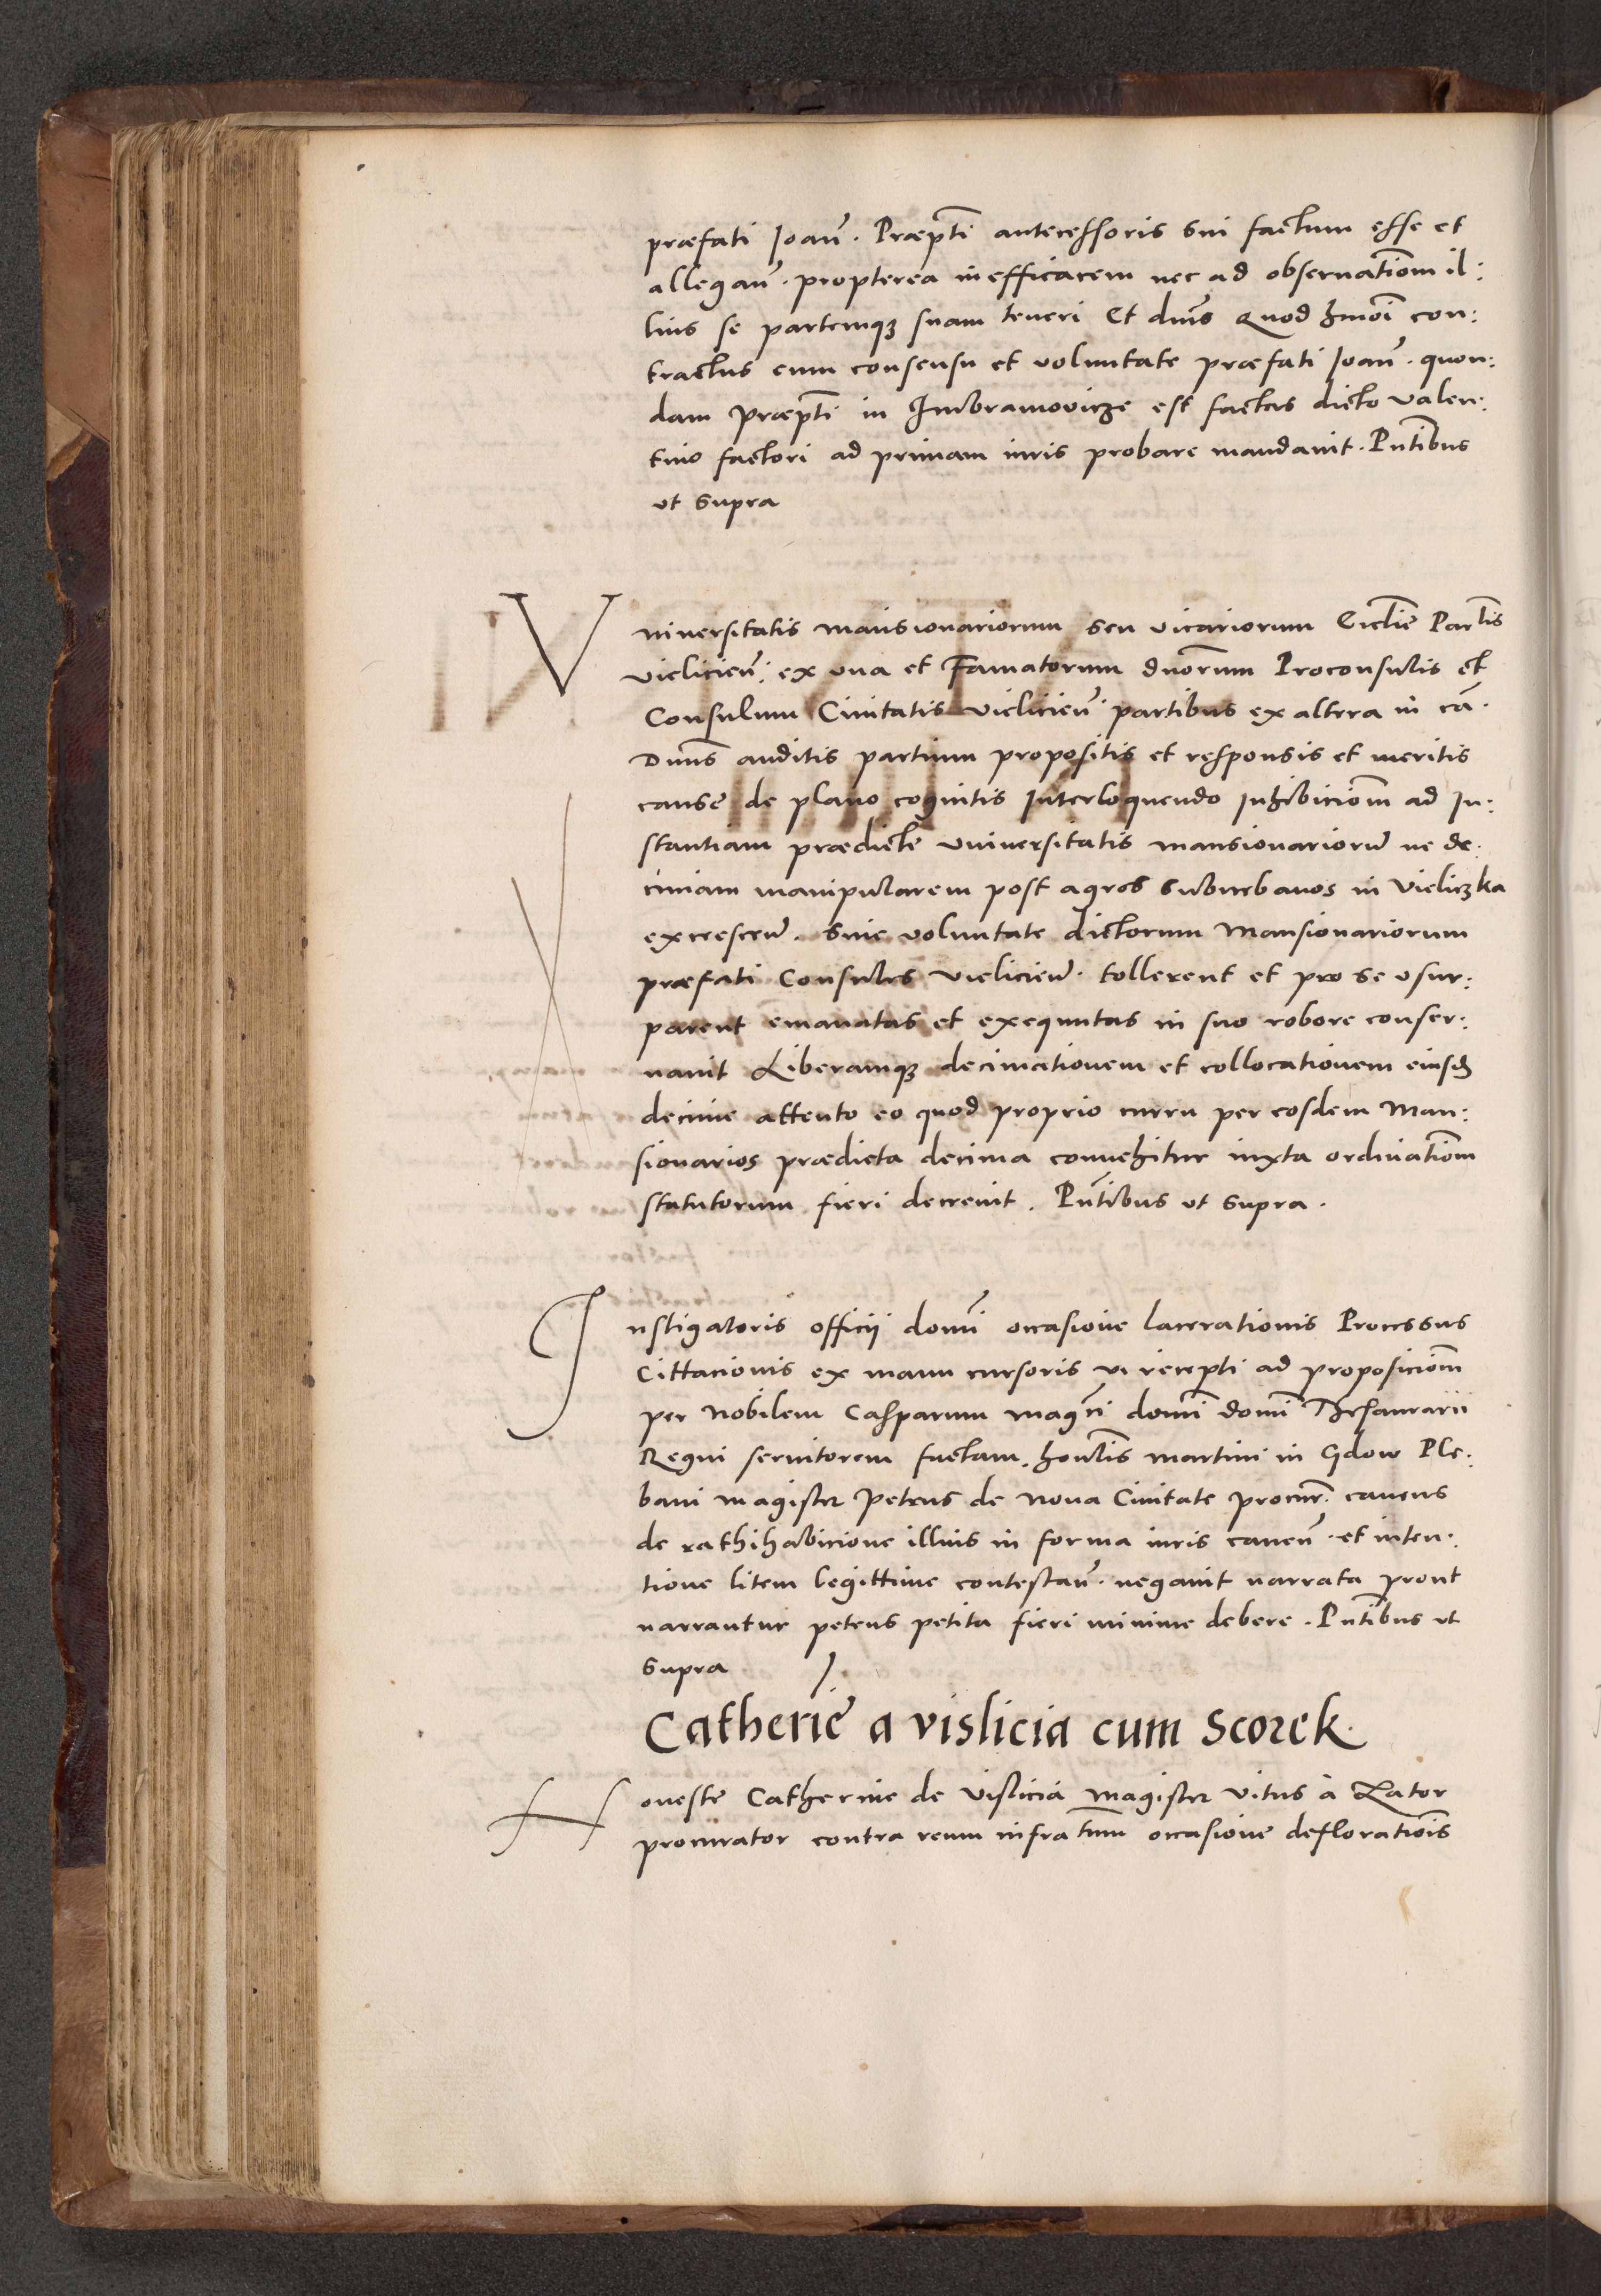 præfati Ioan̄. Præpt̄i antecessoris sui factum esse et
allegan̄. propterea inefficacem nec ad observatiōm il:
lius se partemqꝫ suam teneri Et dn̄s Quod hmōi con:
tractus cum consensu et voluntate præfati Ioan̄. quon:
dam Præpt̄i in Imbramovicze est factus dicto Valen:
tino factori ad primam iuris probare mandavit. Pn̄tibus
ut supra
Vniversitatis mansionariorum seu vicariorum Ecclīe Parlīs
vielicien̄: ex una et Famatorum dn̄orum Proconsulis et
Consulum Civitatis vielicien̄. partibus ex altera in cā.
Dn̄us auditis partium propositis et responsis et meritis
cause de plano cognitis Interloquendo Inhibiciōm ad In:
stantiam prædicte universitatis mansionariorū ne de:
cimam manipularem post agros suburbanos in vieliczka
excrescen̄. sine voluntate dictorum Mansionariorum
præfati Consules vielicien̄. tollerent et pro se usur:
parent emanatas et exequutas in suo robore conser:
vavit Liberamqꝫ decimationem et collocationem eiusd̄
decime attento eo quod proprio curru per eosdem Man:
sionarios prædicta decima convehitur iuxta ordinatiōm
statutorum fieri decrevit. Pn̄tibus ut supra.
Instigatoris officii domī occasione lacerationis Processus
Cittacionis ex manu cursoris vi recepti ad proposiciōm
per Nobilem Casparum magc̄i domī domī Thesaurarii
Regni servitorem factam. honlīs martini in Gdow Ple:
bani magister Petrus de Nova Civitate procur̄. cavens
de rathihabicione illius in forma iuris caven̄. et inten:
tione litem legittime contestan̄. negavit narrata prout
narrantur petens petita fieri minime debere. Pn̄tibus ut
supra
Catherīe a vislicia cum Scorek.
Honeste Catherine de vislicia magister Vitus à Zator
procurator contra reum infratum occasione defloratiōis